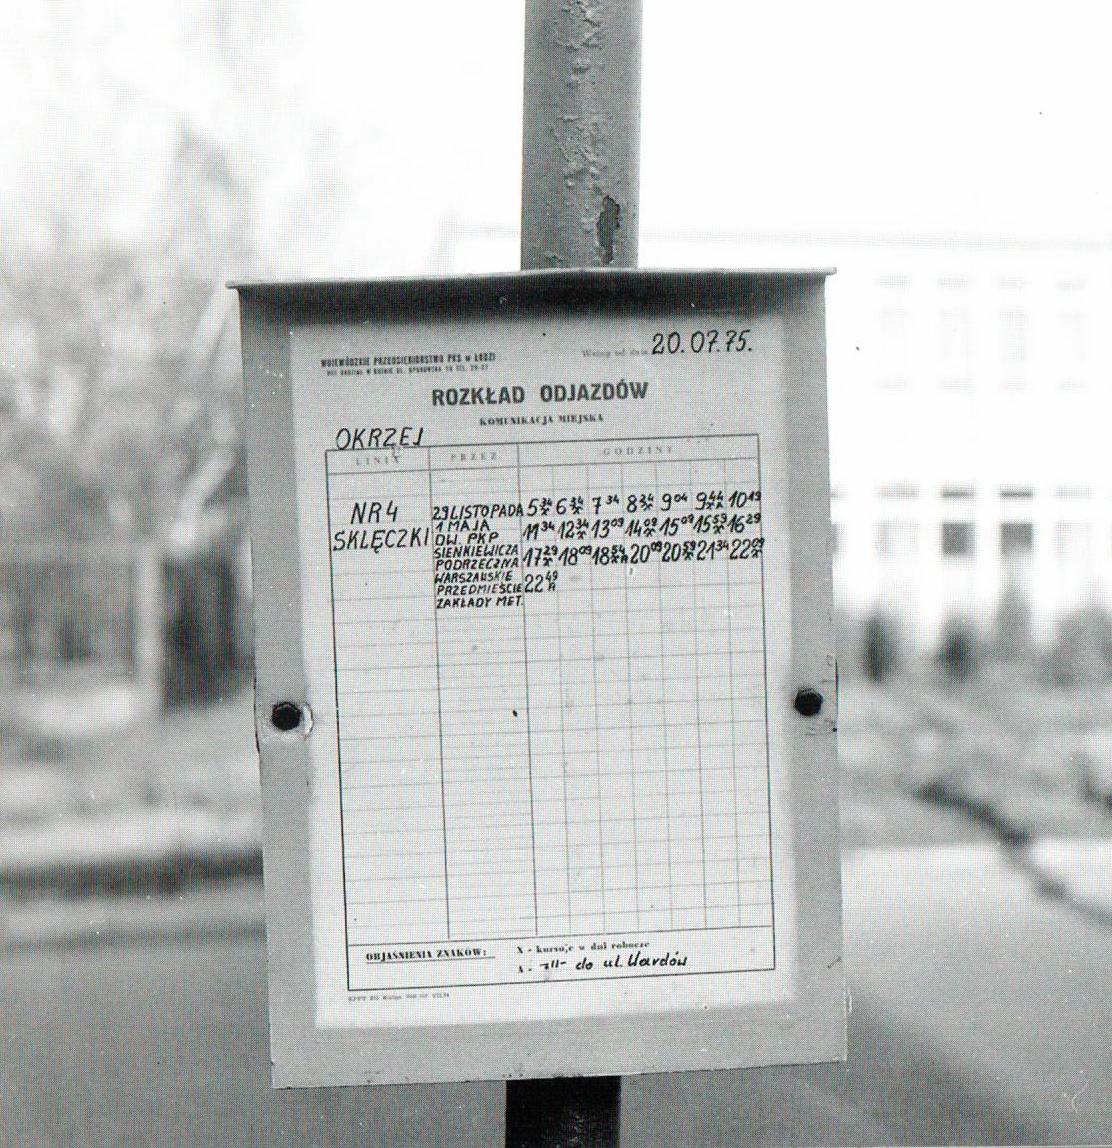 WOJEWÓDZKIE PRZEDSIĘBIORSTWO PKS w ŁODZI
20.07.75.
ROZKŁAD ODJAZDÓW
KOMUNIKACJA MIEJSKA
OKRZEJ
LINIA PRZEZ GODZINY
NR 4
SKLĘCZKI
29 LISTOPADA
1 MAJA
DW. PKP
SIENKIEWICZA
PODRZECZNA
WARSZAWSKIE
PRZEDMIEŚCIE
ZAKŁADY MET.
5 34 X 6 34 X 7 34 8 34 X 9 04 9 44 10 19
11 34 12 34 X 13 09 14 09 15 09 15 59 X 16 29
17 29 X 18 09 18 54 20 09 20 59 X 21 34 22 09
22 49
OBJAŚNIENIA ZNAKÓW: X - kursuje w dni robocze
A - -"- do ul.